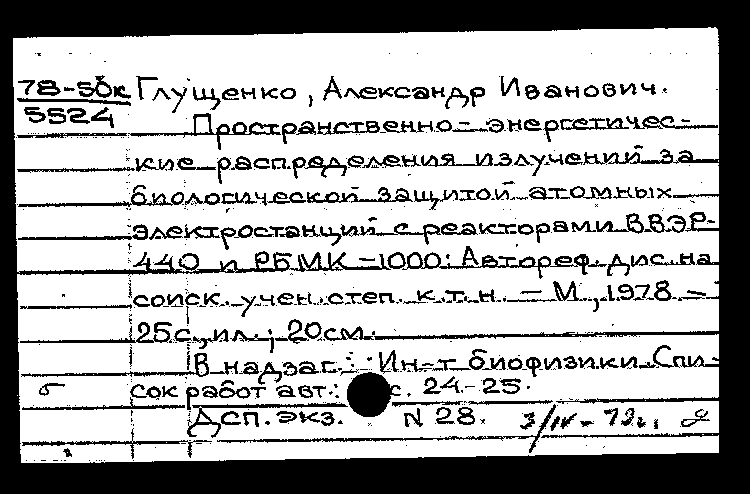 78-5бк Глущенко, Александр Иванович.
5524
Пространственно-энергетичес-
кие распределения излучений за
биологической защитой атомных
электростанций с реакторами ВВЭР-
440 и РБМК-1000: Автореф. дис. на
соиск. учен. степ. к.т.н. - М., 1978 -
25с., ил.; 20см.
В надзаг.: Ин-т биофизики. Спи-
сок работ авт.: с. 24-25.
ДСП. экз. N 28. 3/IV-79г.